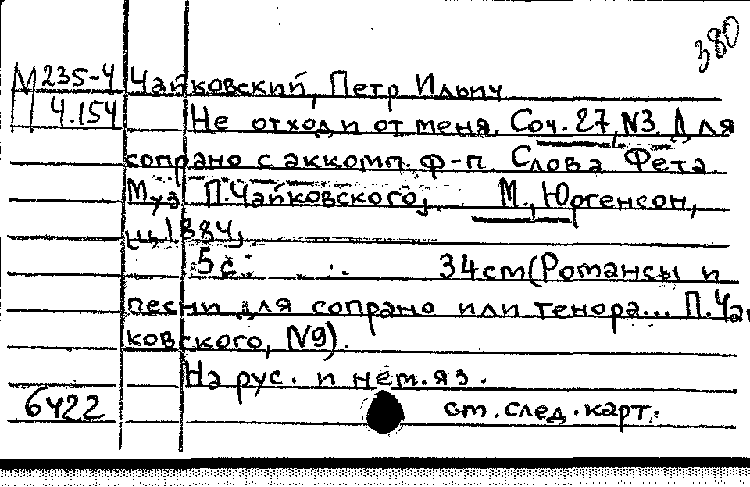 380
М 235-4 Чайковский, Петр Ильич
4.154 Не отходи от меня. Соч. 27, N3. Для
сопрано с аккомп. ф-п. Слова Фета
Муз. П. Чайковского, М., Юргенсон,
ц. 1884,
5 с. 34 см (Романсы и
песни для сопрано или тенора... П. Чай
ковского, N9).
На рус. и нем. яз.
6422 см. след. карт.